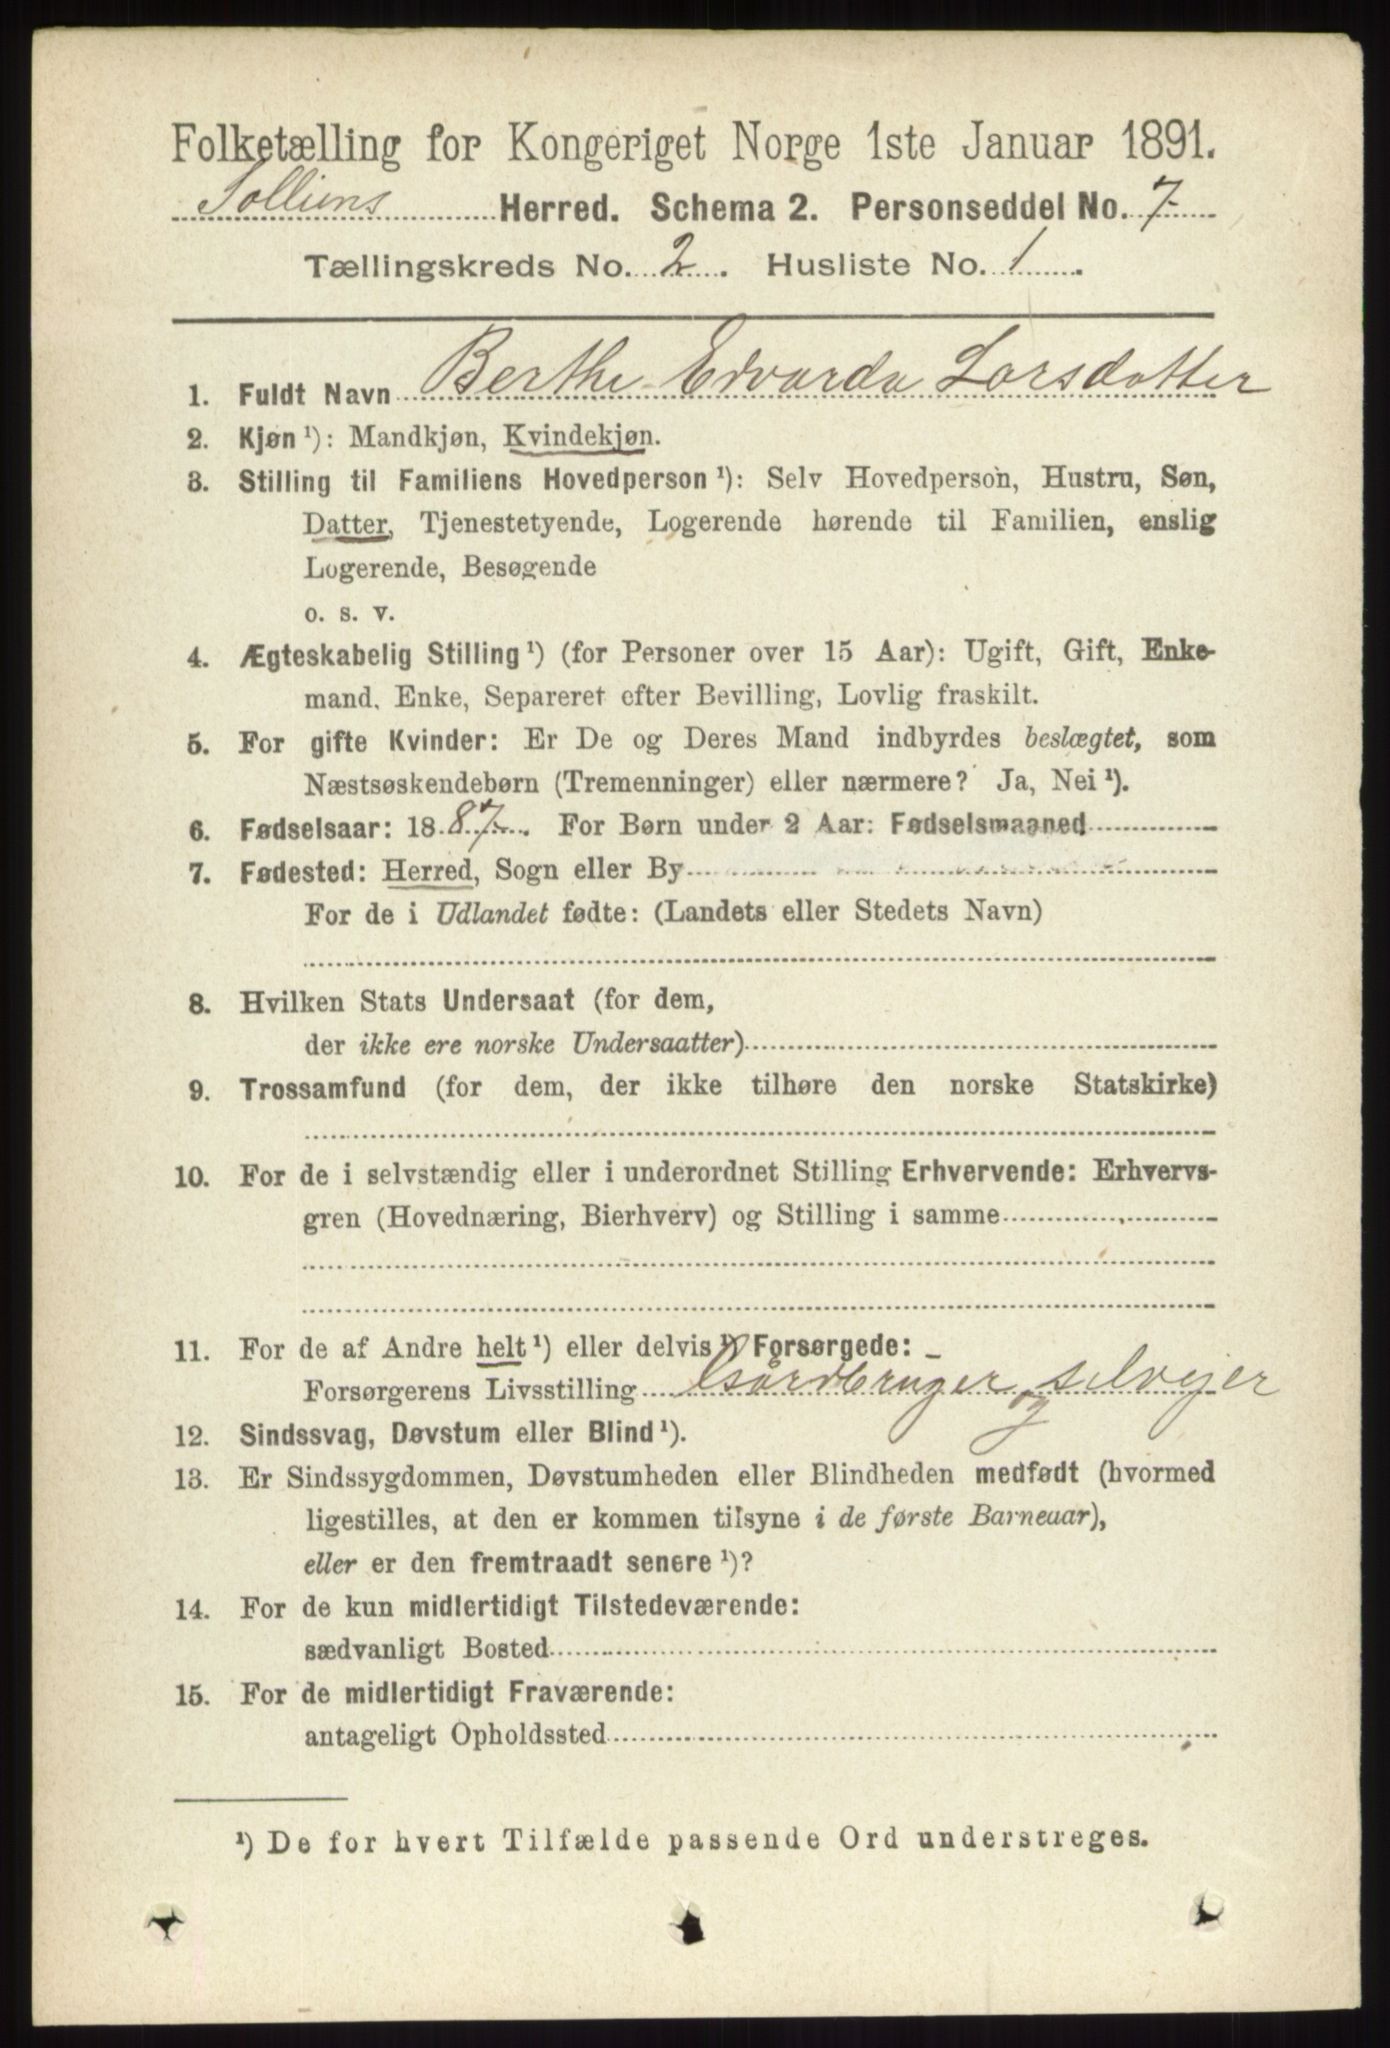 Folketælling for Kongeriget Norge 1ste Januar 1891.
Solliens Herred. Schema 2. Personseddel No. 7
Tællingskreds No. 2. Husliste No. 1
1. Fuldt Navn Berthe Edvarda Larsdatter
2. Kjøn ¹): Mandkjøn, Kvindekjøn.
3. Stilling til Familiens Hovedperson ¹): Selv Hovedperson, Hustru, Søn,
Datter, Tjenestetyende, Logerende hørende til Familien, enslig
Logerende, Besøgende
o. s. v.
4. Ægteskabelig Stilling ¹) (for Personer over 15 Aar): Ugift, Gift, Enke-
mand, Enke, Separeret efter Bevilling, Lovlig fraskilt.
5. For gifte Kvinder: Er De og Deres Mand indbyrdes beslægtet, som
Næstsøskendebørn (Tremenninger) eller nærmere? Ja, Nei ¹).
6. Fødselsaar: 1887. For Børn under 2 Aar: Fødselsmaaned
7. Fødested: Herred, Sogn eller By
For de i Udlandet fødte: (Landets eller Stedets Navn)
8. Hvilken Stats Undersaat (for dem,
der ikke ere norske Undersaatter)
9. Trossamfund (for dem, der ikke tilhøre den norske Statskirke)
10. For de i selvstændig eller i underordnet Stilling Erhvervende: Erhvervs-
gren (Hovednæring, Bierhverv) og Stilling i samme
11. For de af Andre helt ¹) eller delvis ¹) Forsørgede:
Forsørgerens Livsstilling Gårdbruger og selvejer
12. Sindssvag, Døvstum eller Blind ¹).
13. Er Sindssygdommen, Døvstumheden eller Blindheden medfødt (hvormed
ligestilles, at den er kommen tilsyne i de første Barneaar),
eller er den fremtraadt senere ¹)?
14. For de kun midlertidigt Tilstedeværende:
sædvanligt Bosted
15. For de midlertidigt Fraværende:
antageligt Opholdssted
¹) De for hvert Tilfælde passende Ord understreges.